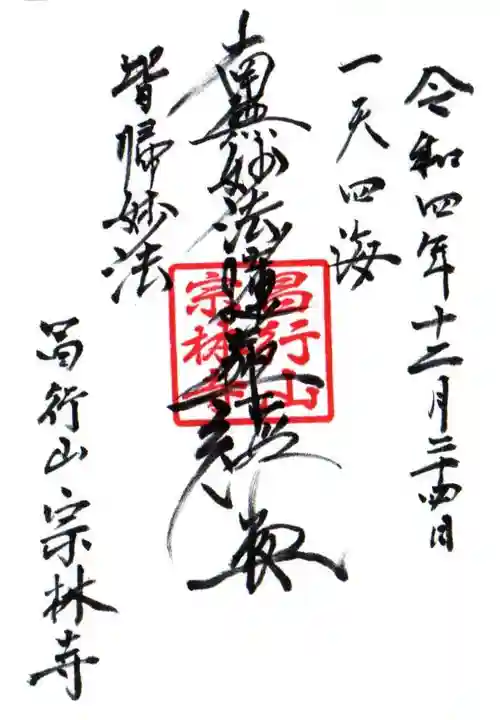 令和四年十二月二十四日
一天四海
南無妙法蓮華経
皆帰妙法
昌行山
宗林寺
昌行山 宗林寺